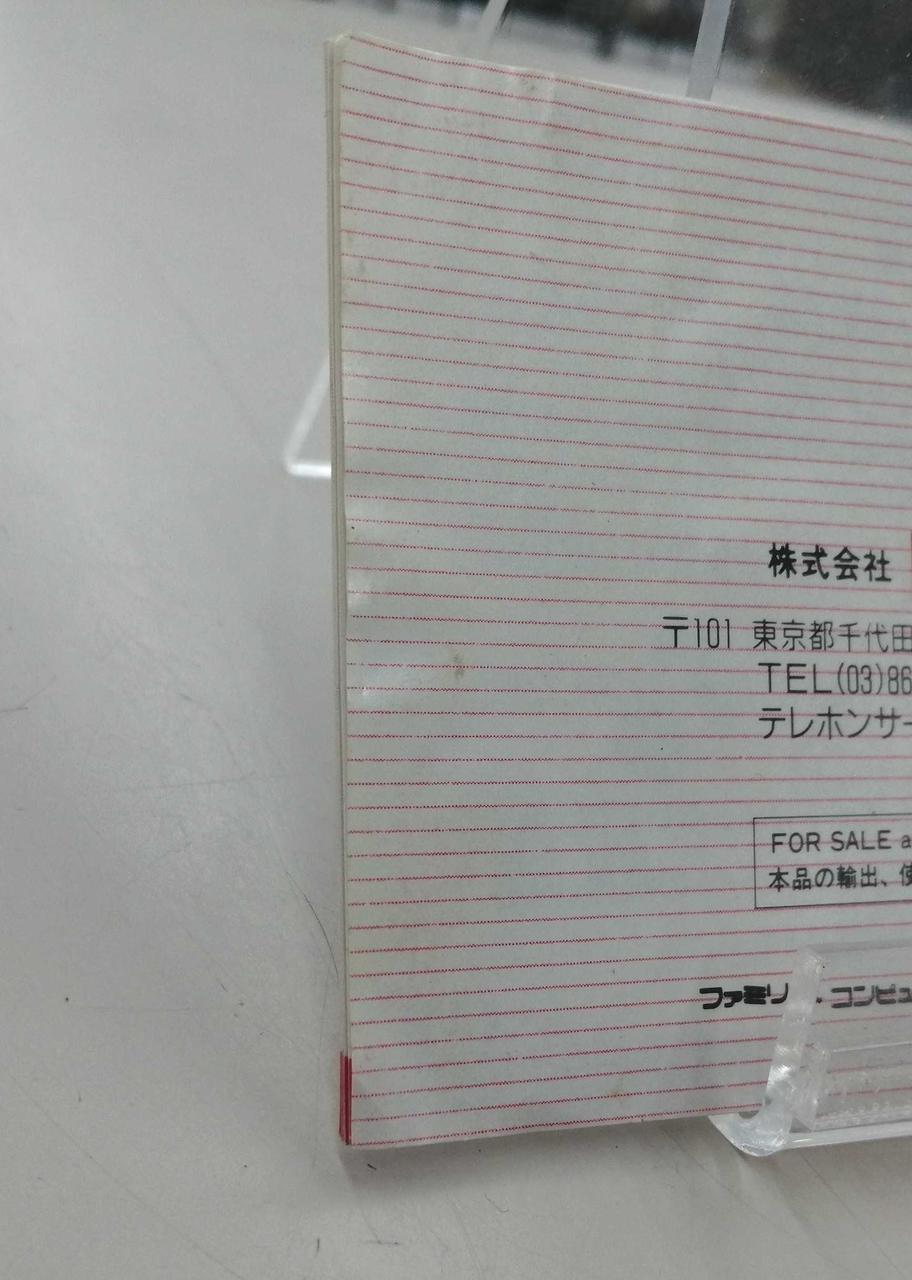 株式会社
〒101 東京都千代田
TEL(03)86
テレホンサー
FOR SALE a
本品の輸出、使
ファミリ コンピュ